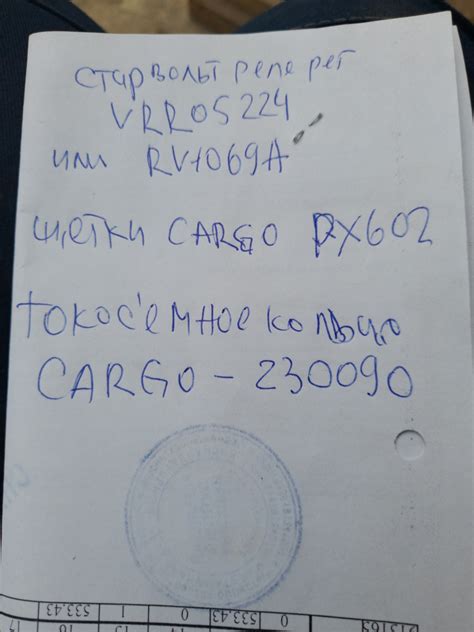 старвольт реле рег
VRR05224
или RV1069A
щетки CARGO PX602
токос'емное кольцо
CARGO - 230090
533.43 1 0 533.43 0